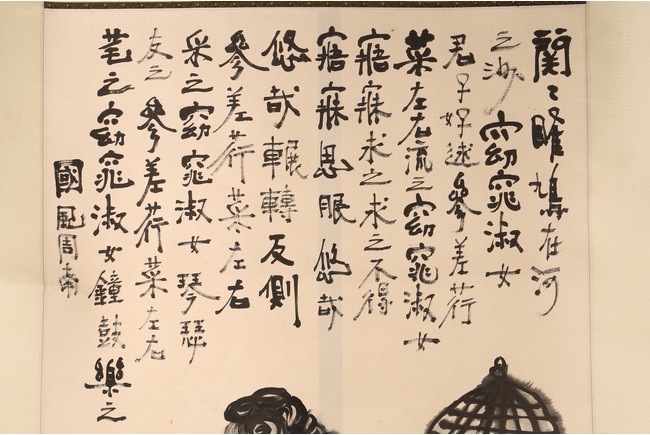 關々雎鳩在河
之洲窈窕淑女
君子好逑參差荇
菜左右流之窈窕淑女
寤寐求之求之不得
寤寐思服悠哉
悠哉輾轉反側
參差荇菜左右
采之窈窕淑女琴瑟
友之參差荇菜左右
芼之窈窕淑女鐘鼓樂之
國風周南